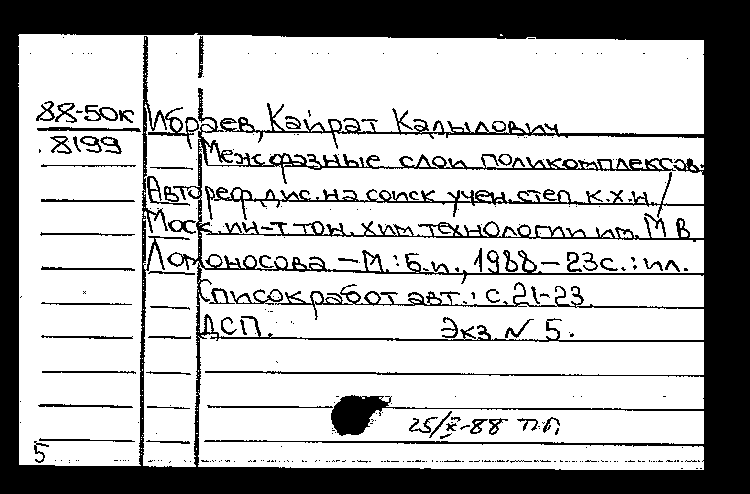 88-50к Ибраев, Кайрат Кадылович.
8199 Межфазные слои поликомплексов:
Автореф. дис. на соиск учен. степ. к.х.н. /
Моск. ин-т тон. хим. технологии им. М В.
Ломоносова – М.: Б.и., 1988. – 23с.: ил.
Список работ авт.: с. 21-23.
ДСП. Экз. № 5.
25/X-88 П.П
5